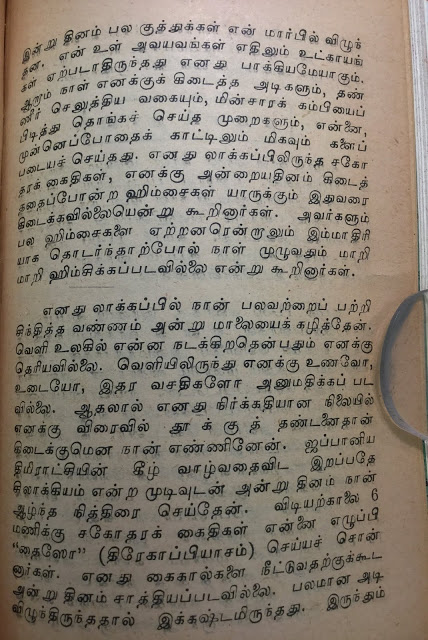 இன்று தினம் பல குத்துக்கள் என் மார்பில் விழுந்
தன. என் உள் அவயவங்கள் எதிலும் உட்காயங்
கள் ஏற்படாதிருந்தது எனது பாக்கியமேயாகும்.
ஆறும் நாள் எனக்குக் கிடைத்த அடிகளும், தண்
ணீர் செலுத்திய வகையும், மின்சாரக் கம்பியைப்
பிடித்து தொங்கச் செய்த முறைகளும், என்னை,
முன்னெப்போதைக் காட்டிலும் மிகவும் களைப்
படையச் செய்தது. எனது லாக்கப்பிலிருந்த சகோ
தரக் கைதிகள், எனக்கு அன்றையதினம் கிடைத்
ததைப்போன்ற ஹிம்சைகள் யாருக்கும் இதுவரை
கிடைக்கவில்லையென்று கூறினார்கள். அவர்களும்
பல ஹிம்சைகளை ஏற்றனரென்றாலும் இம்மாதிரி
யாக தொடர்ந்தாற்போல் நாள் முழுவதும் மாறி
மாறி ஹிம்சிக்கப்படவில்லை என்று கூறினார்கள்.
எனது லாக்கப்பில் நான் பலவற்றைப் பற்றி
சிந்தித்த வண்ணம் அன்று மாலையைக் கழித்தேன்.
வெளி உலகில் என்ன நடக்கிறதென்பதும் எனக்கு
தெரியவில்லை. வெளியிலிருந்து எனக்கு உணவோ,
உடையோ, இதர வசதிகளோ அனுமதிக்கப் பட
வில்லை. ஆதலால் எனது நிர்க்கதியான நிலையில்
எனக்கு விரைவில் தூக்குத் தண்டனைதான்
கிடைக்குமென நான் எண்ணினேன். ஜப்பானிய
திமிராட்சியின் கீழ் வாழ்வதைவிட இறப்பதே
சிலாக்கியம் என்ற முடிவுடன் அன்று தினம் நான்
ஆழ்ந்த நித்திரை செய்தேன். விடியற்காலை 6
மணிக்கு சகோதரக் கைதிகள் என்னை எழுப்பி
“தைஸோ” (திரேகாப்பியாசம்) செய்யச் சொன்
னார்கள். எனது கைகால்களை நீட்டுவதற்குக்கூட
அன்று தினம் சாத்தியப்படவில்லை. பலமான அடி
விழுந்திருந்ததால் இக்கஷ்டமிருந்தது. இருந்தும்